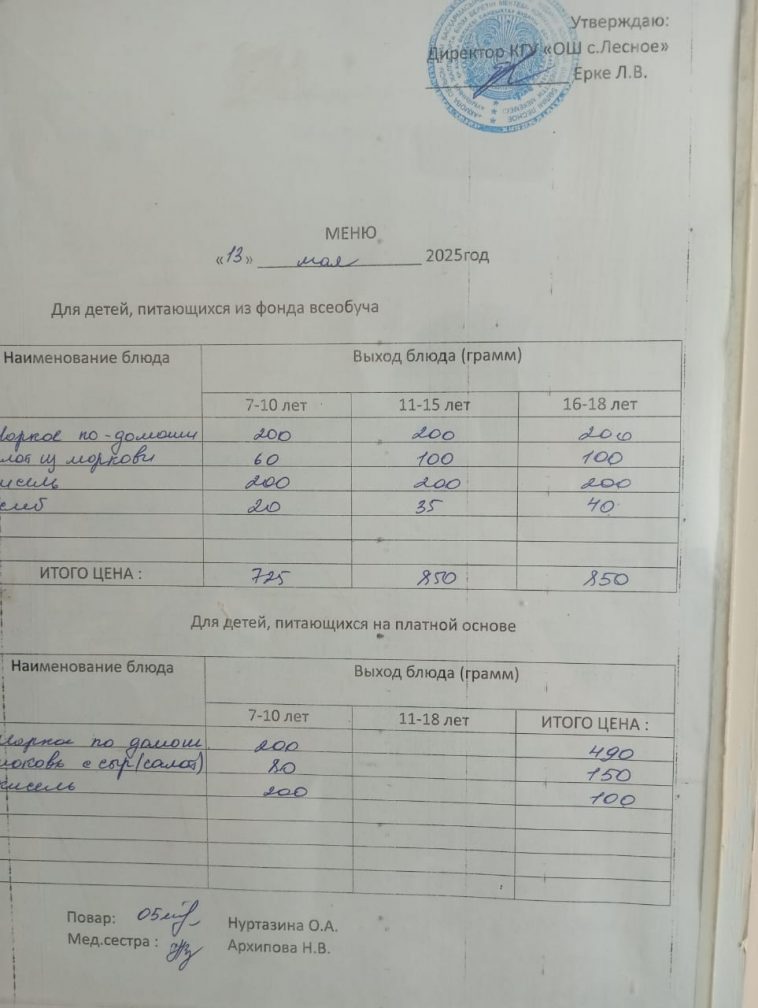 Утверждаю:
Директор КГУ «ОШ с.Лесное»
Ерке Л.В.
МЕНЮ
«13» мая 2025год
Для детей, питающихся из фонда всеобуча
Наименование блюда Выход блюда (грамм)
7-10 лет 11-15 лет 16-18 лет
аркое по-домаши 200 200 200
лат из моркови 60 100 100
исель 200 200 200
леб 20 35 40
ИТОГО ЦЕНА : 725 850 850
Для детей, питающихся на платной основе
Наименование блюда Выход блюда (грамм)
7-10 лет 11-18 лет ИТОГО ЦЕНА :
Жаркое по домаш 200 490
моковь с сыр(салат) 80 150
кисель 200 100
Повар: Нуртазина О.А.
Мед.сестра : Архипова Н.В.